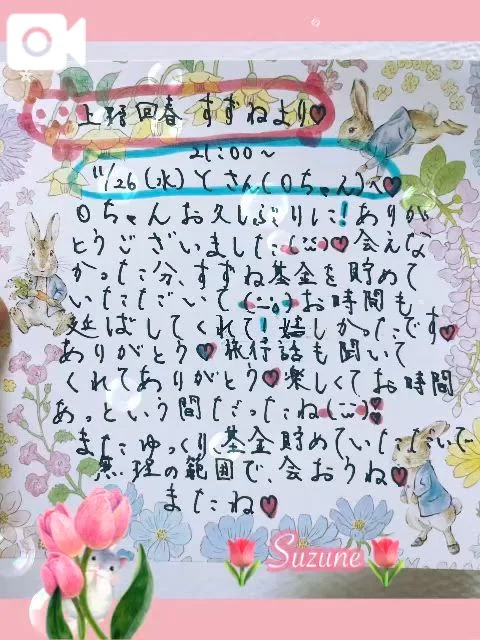 上野回春 すずねより♥
21:00～
11/26(水) Yさん(Oちゃん)へ♥
Oちゃんお久しぶりに!ありが
とうございました(¨̮)♥会えな
かった分、すずね基金を貯めて
いただいて(¨̮)お時間も
延ばしてくれて!嬉しかったです♥
ありがとう♥旅行話も聞いて
くれてありがとう♥楽しくてお時間
あっという間だったね(¨̮)❣
またゆっくり、基金貯めていただいて
無理の範囲で、会おうね♥
またね♥
Suzune